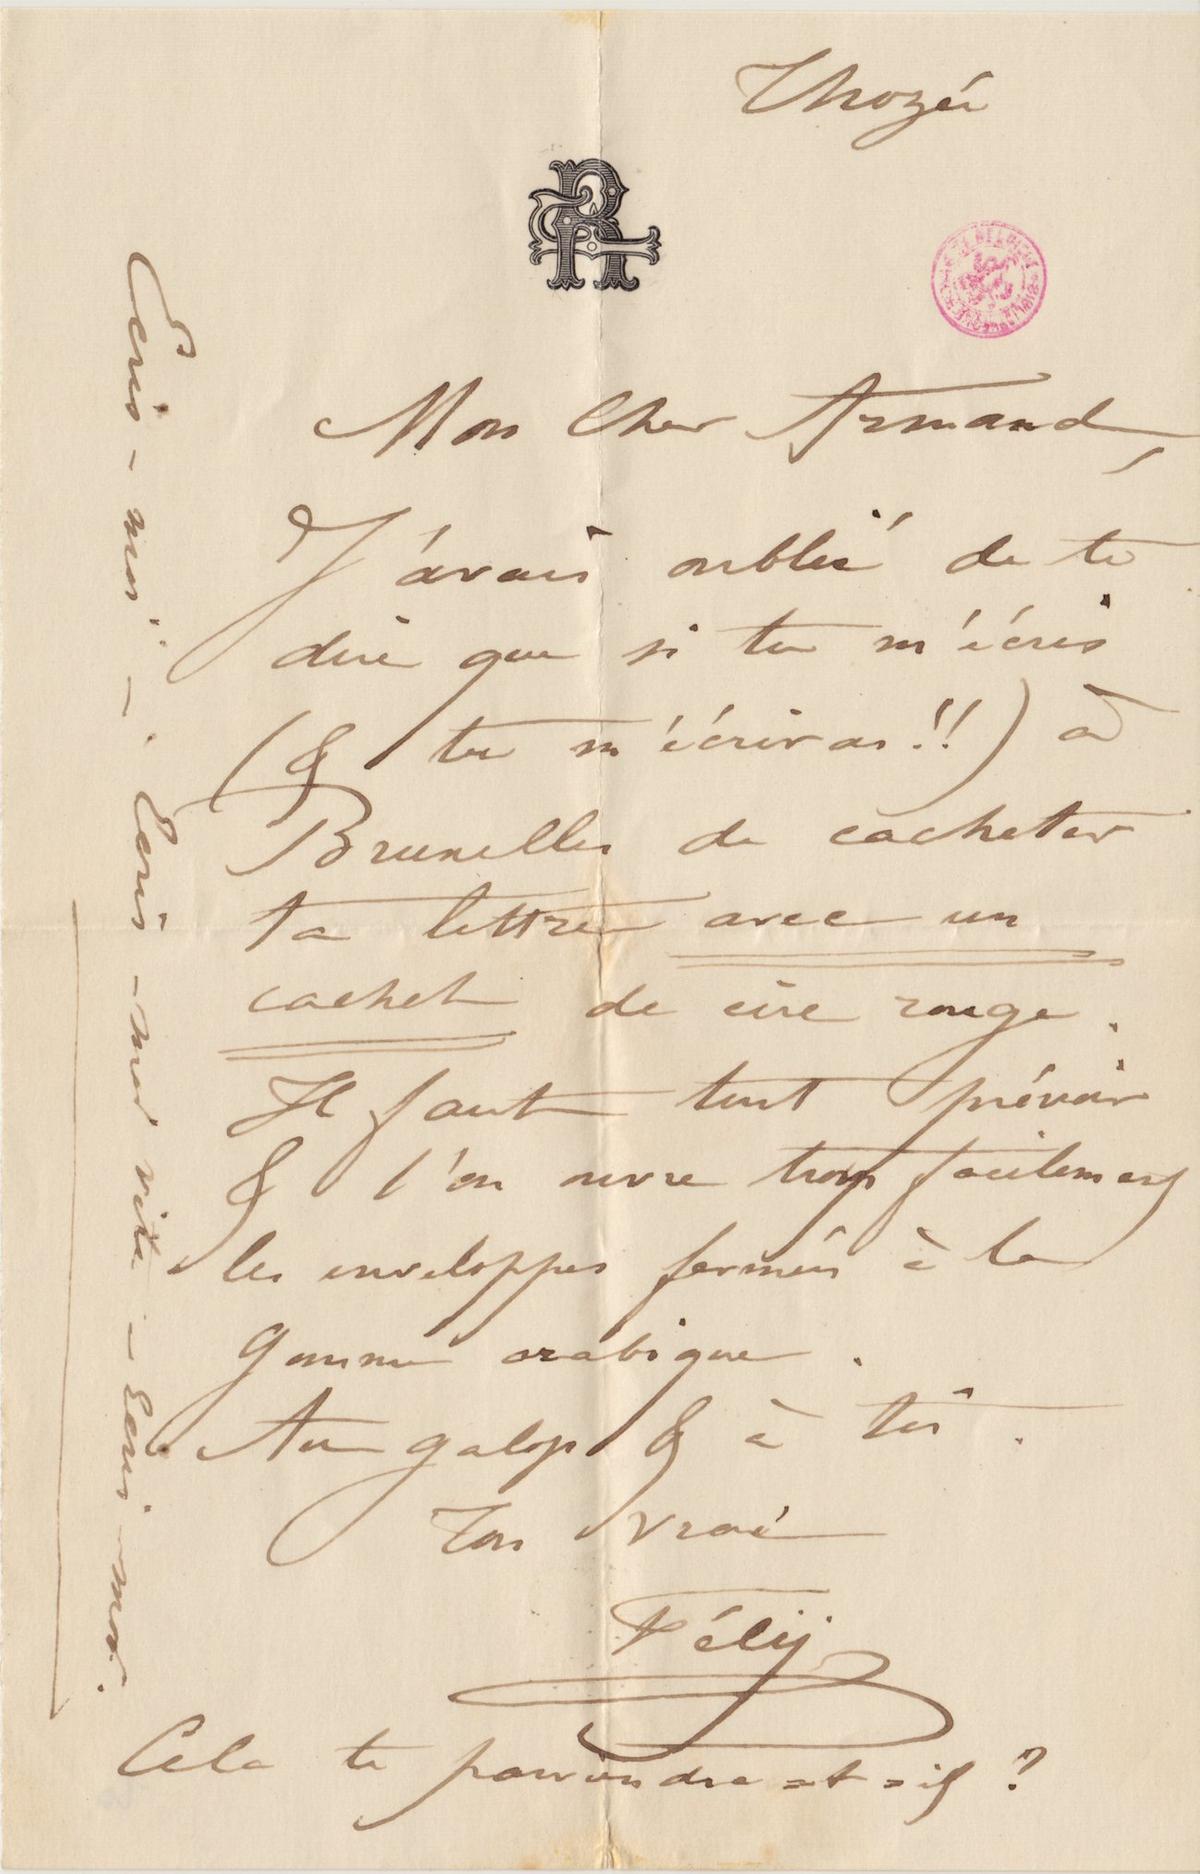 Thozée
Mon Cher Armand,
J'avais oublié de te
dire que si tu m'écris
(& tu m'écriras!!) à
Bruxelles de cacheter
ta lettre avec un
cachet de cire rouge.
Il faut tout prévoir
& l'on ouvre trop facilement
les enveloppes fermées à la
gomme arabique.
Au galop & à toi.
Ton vrai
Fély
Cela te parviendra=t=il?
Ecris-moi - Ecris-moi vite - Ecris-moi.